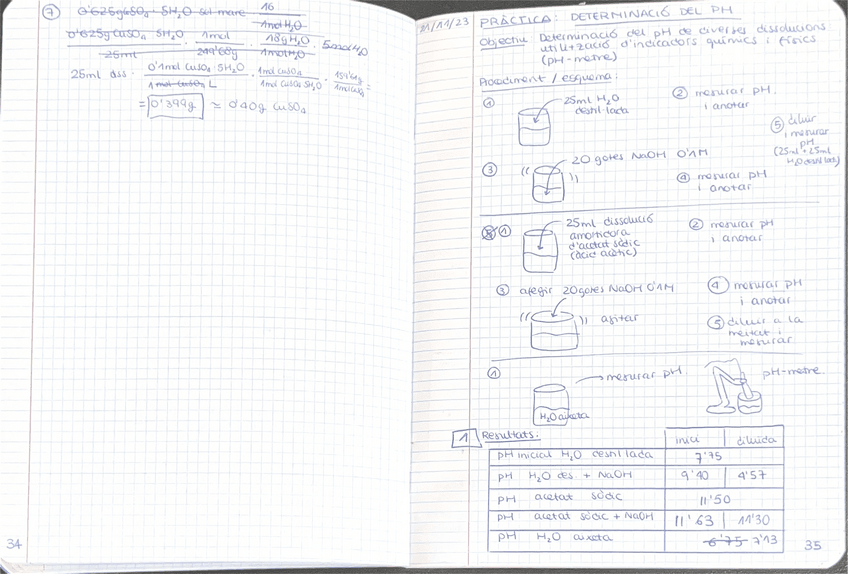 7 0'625g CuSO₄ · 5H₂O sol mare 1G
1mol H₂O
0'625g CuSO₄ 5H₂O · 1mol · 18g H₂O · 5mol H₂O
25ml 249'68g 1mol H₂O
25ml diss · 0'1mol CuSO₄ · 5H₂O · 1mol CuSO₄ · 159'68g =
1 mol CuSO₄ L 1mol CuSO₄ 5H₂O 1mol CuSO₄
= 0'399g ≈ 0'40g CuSO₄
34
21/11/23 PRÀCTICA: DETERMINACIÓ DEL PH
Objectiu Determinació del pH de diverses dissolucions
utilització d'indicadors químics i físics
(pH-metre)
Procediment / esquema:
① 25ml H₂O
destil·lada
② mesurar pH
i anotar
③ 20 gotes NaOH 0'1M
④ mesurar pH
i anotar
⑤ diluir
i mesurar
pH
(25ml + 25ml
H₂O destil·lada)
① 25ml dissolució
amortidora
d'acetat sòdic
(àcid acètic)
② mesurar pH
i anotar
③ afegir 20 gotes NaOH 0'1M
agitar
④ mesurar pH
i anotar
⑤ diluir a la
meitat i
mesurar
① mesurar pH
H₂O aixeta
pH-metre
1 Resultats:
inici diluida
pH inicial H₂O destil·lada 7'75
pH H₂O des + NaOH 9'40 4'57
pH acetat sòdic 11'50
pH acetat sòdic + NaOH 11'63 11'30
pH H₂O aixeta 6'75 7'13
35